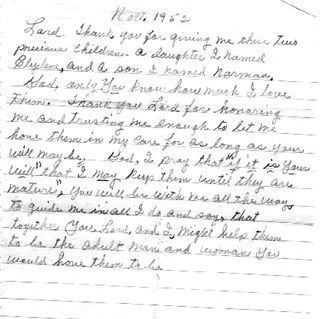 Nov. 1952
Lord. Thank you for giving me these two
precious children. a daughter I named
and a son I named Norman.
God, only You know how much I love
them. Thank you Lord for honoring
me and trusting me enough to let me
have them in my care for as long as your
will may be. God, I pray that "if it is Your
will" that I may keep them until they are
mature", You will be with me all the way
to guide me in all I do and say, that
together You, Lord, and I, might help them
to be the adult man and woman You
would have them to be